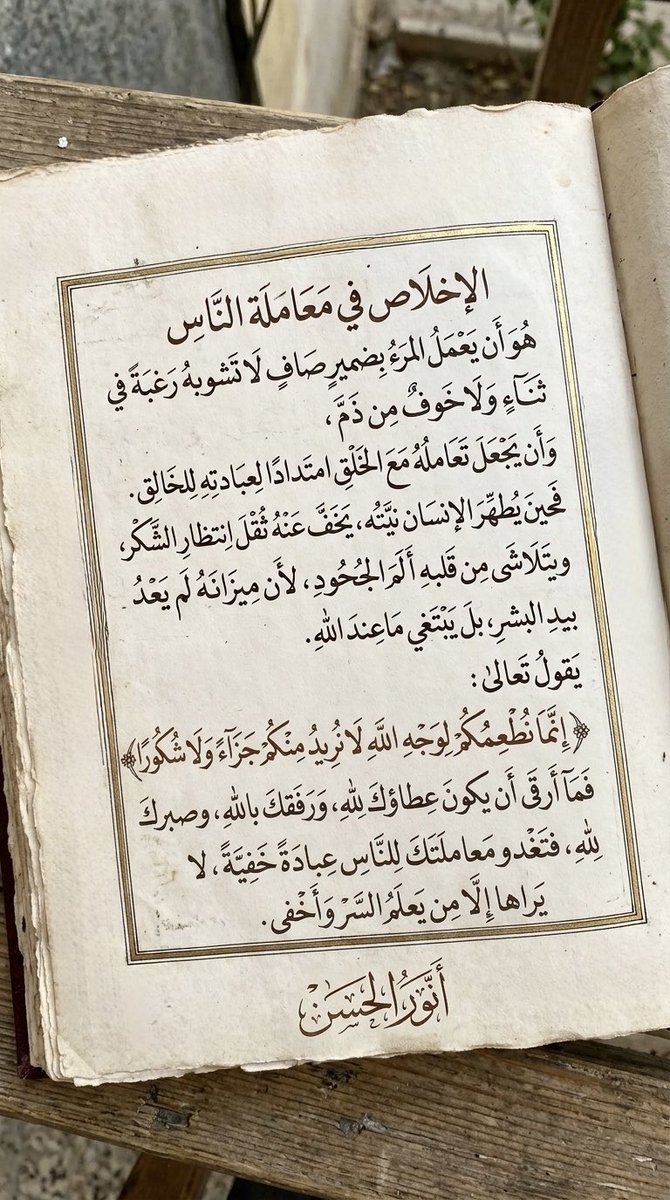 الإخلَاص في مَعَامَلَة النَّاسِ
هُوَ أَن يَعْمَلُ المَرءُ بِضميرٍ صَافٍ لَا تَشوبهُ رَغبَةً في
ثنَآءٍ وَلَا خَوفٌ مِن ذَمَّ،
وَأَن يَجْعَلَ تَعَاملُهُ مَعَ الخَلْقِ امتَدادًا لِعِبَادتِهِ لِلخَالِقِ.
فَحينَ يُطهِّرَ الإنسَان نيَّتُه، يَخَفَّ عَنْهُ ثُقْلَ اِنتظارِ الشَّكْرِ،
ويتَلَاشَى مِن قَلبهِ أَلَمَ الجُحُودِ، لأَن مِيزَانَهُ لَم يَعْدُ
بيدِ البشرِ، بلَ يَبْتَغي مَا عِندَ اللهِ.
يَقولُ تَعَالىٰ:
﴿إِنَّمَا نُطْعِمُكُمْ لِوَجْهِ اللَّهِ لَا نُرِيدُ مِنْكُمْ جَزَآءً وَلَا شُكُورًا﴾
فَمَآ أَرقَى أَن يكونَ عِطاؤكَ لِلهِ، وَرَفقكَ باللهِ، وصبركَ
لِلهِ، فتَغْدو مَعَاملَتَكَ لِلنَّاسِ عِبادَةً خَفِيَّةً، لا
يَراها إِلَّا مِن يَعلَمُ السَّرّ وَأَخْفى.
أَنَّوَرُ الحَسَنْ